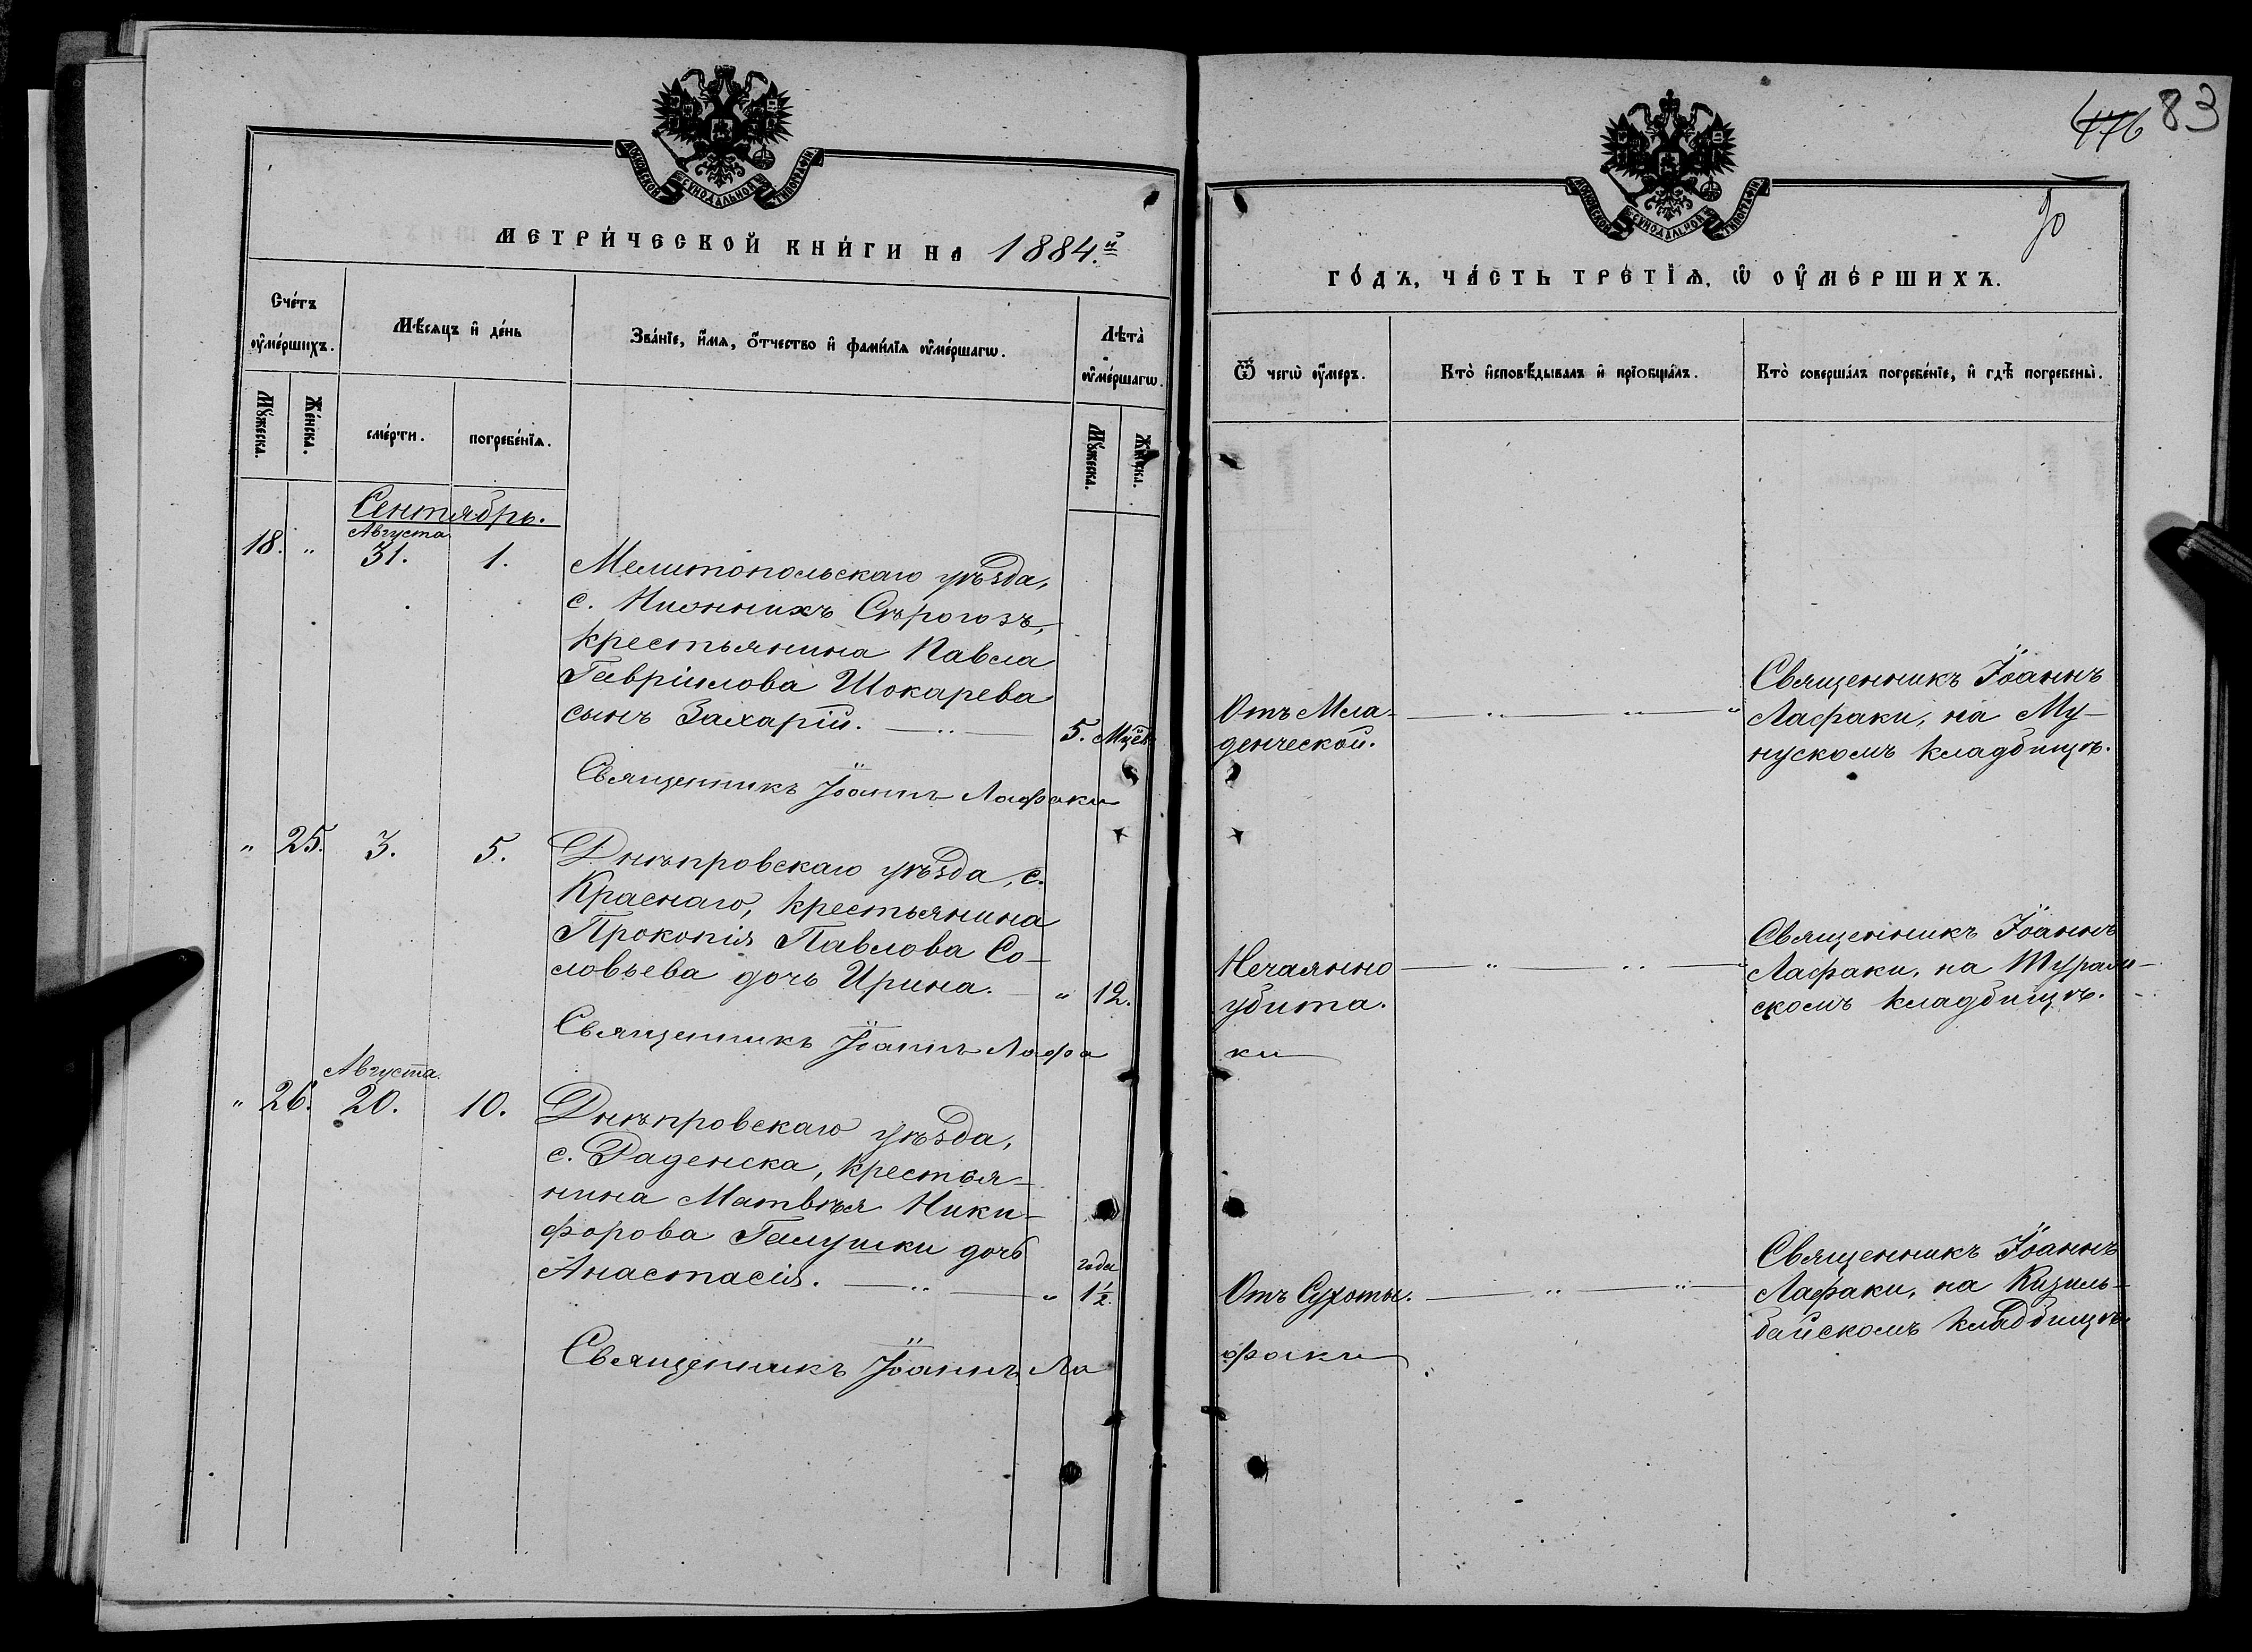 МОСКОВСКОЙ СѴНОДАЛЬНОЙ ТИПОГРАФІИ
МЕТРИ́ЧЕСКОЙ КНИ́ГИ НА 1884.й
Сче́тъ ᲂу҆ме́ршихъ.
Мѣ́сяцъ и҆ де́нь
Зва́нїе, и҆́мѧ, ѻ҆́тчество и҆ фами́лїѧ ᲂу҆ме́ршагѡ.
Лѣ́та ᲂу҆ме́ршагѡ.
Мꙋ́жеска.
Же́нска.
сме́рти.
погребе́нїѧ.
Мꙋ́жеска.
Же́нска.
Сентябрь.
Августа
18. " 31. 1. Мелитопольскаго уѣзда,
с. Нижнихъ Сѣрогозъ,
крестьянина Павла
Гавріилова Шокарева
сынъ Захарій. 5. Мцев
Священникъ Іоаннъ Лафаки
" 25. 3. 5. Днѣпровскаго уѣзда, с.
Краснаго, крестьянина
Прокопія Павлова Со-
ловьева дочь Ирина. " 12.
Священникъ Іоаннъ Лафа
Августа.
" 26. 20. 10. Днѣпровскаго уѣзда,
с. Раденска, крестья-
нина Матвѣя Ники-
форова Галушки дочь
года
Анастасія. " 1½.
Священникъ Іоаннъ Ла
83
МОСКОВСКОЙ СѴНОДАЛЬНОЙ ТИПОГРАФІИ
ГО́ДЪ, ЧА́СТЬ ТРЕ́ТЇѦ, Ѽ ОУ҆МЕ́РШИХЪ.
Ѿ чегѡ̀ ᲂу҆́меръ.
Кто̀ и҆сповѣ́дывалъ и҆ прїѡбща́лъ.
Кто̀ соверша́лъ погребе́нїе, и҆ гдѣ̀ погребены̀.
Отъ Мла-
денческой.
Священникъ Іоаннъ
Лафаки, на Му-
нускомъ кладбищѣ.
Нечаянно
убита.
Священникъ Іоаннъ
Лафаки, на
скомъ кладбищѣ.
ки
Отъ Сухоты.
Священникъ Іоаннъ
Лафаки, на Кизиль-
байскомъ кладбищѣ.
факи